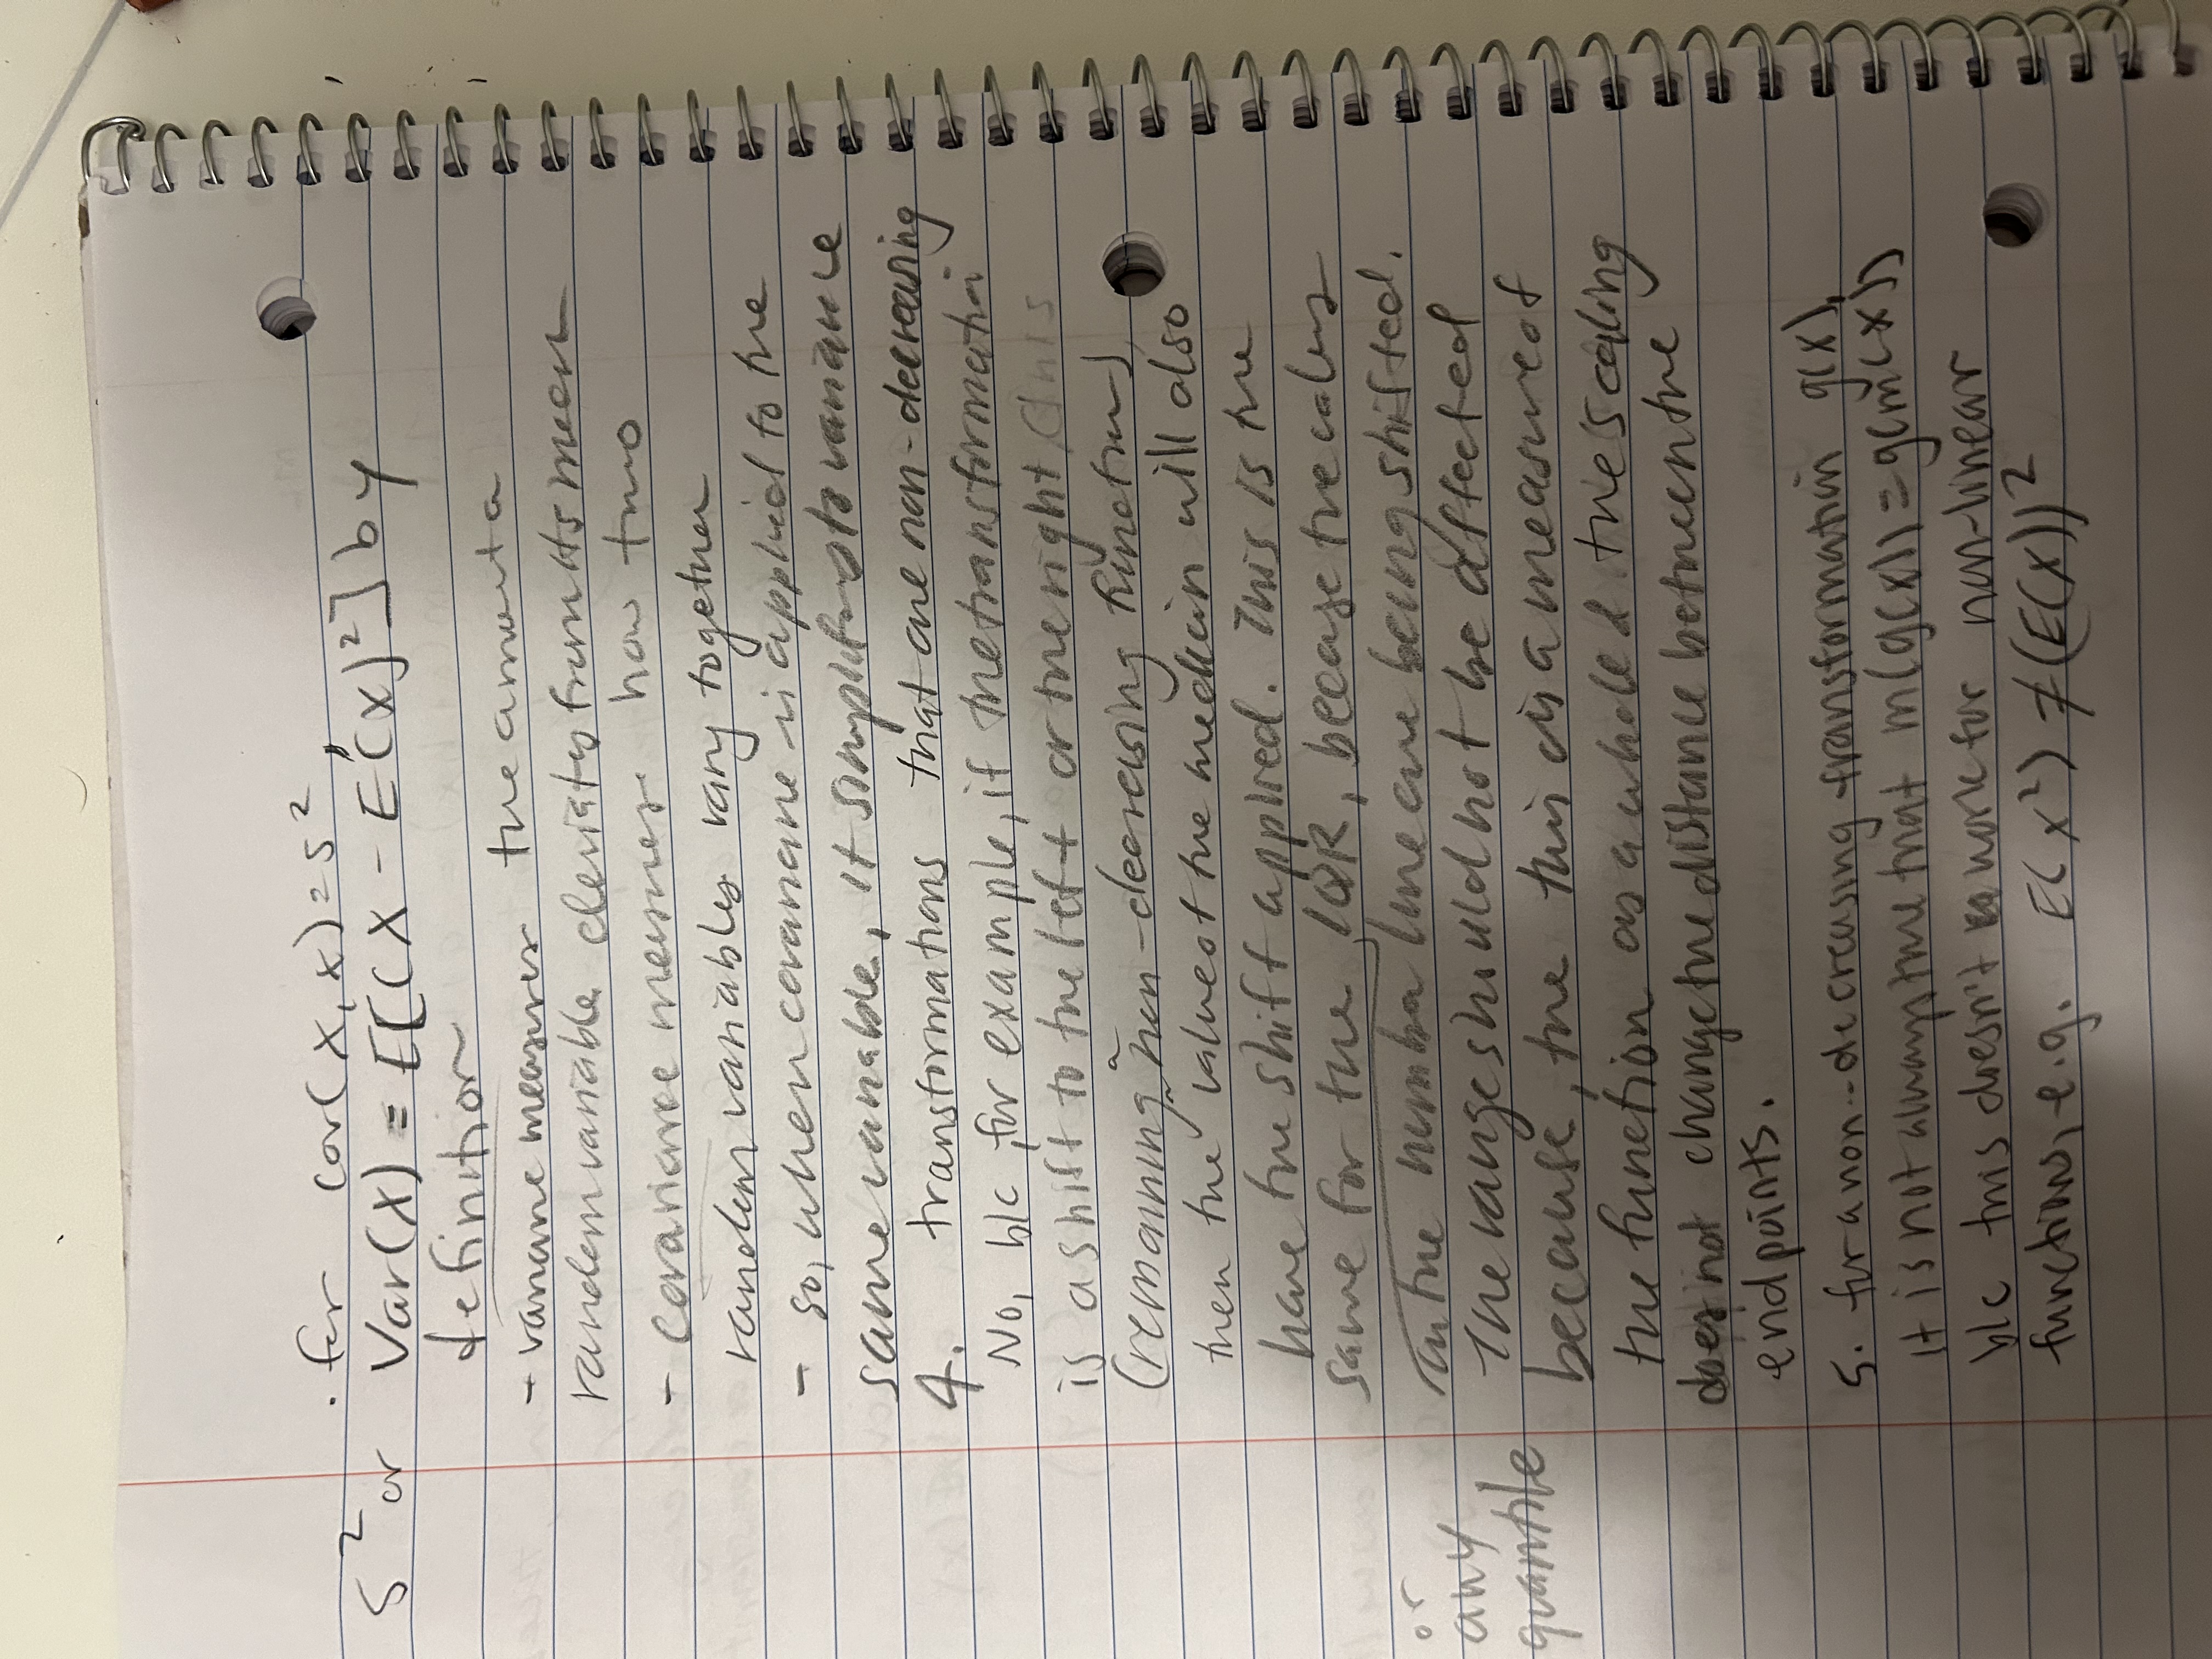 . for cov(X, x) = s²,
s² or Var(X) = E[(X - E(X)²] by
definition
- variance measures the amount a
random variable deviates from its mean
- covariance measures how two
random variables vary together
- so, when covariance is applied to the
same variable, it simplifies to variance
4. transformations that are non-decreasing
No, b/c, for example, if the transformation
is a shift to the left or the right, this
(remaining a non-decreasing function)
then the value of the median will also
have the shift applied. This is the
same for the IQR, because the values
or any quantile
on the number line are being shifted.
The range should not be affected
because, the this is a measure of
the function as a whole & the scaling
does not change the distance between the
endpoints.
5. for a non-decreasing transformation g(x),
it is not always true that m(g(x)) = g(m(x))
b/c this doesn't work for non-linear
functions, e.g. E(x²) ≠ (E(X))²